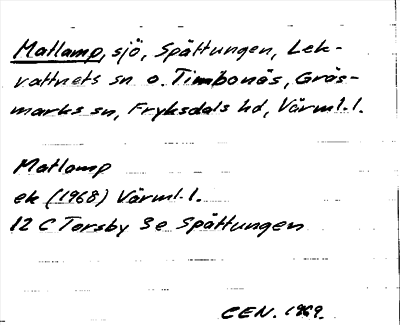 Matlamp, sjö, Spättungen, Lek-
vattnets sn o. Timbonäs, Gräs-
marks sn, Fryksdals hd, Värml. l.
Matlamp
ek (1968) Värml. l.
12 C Torsby 3e Spättungen
CEN. 1969.